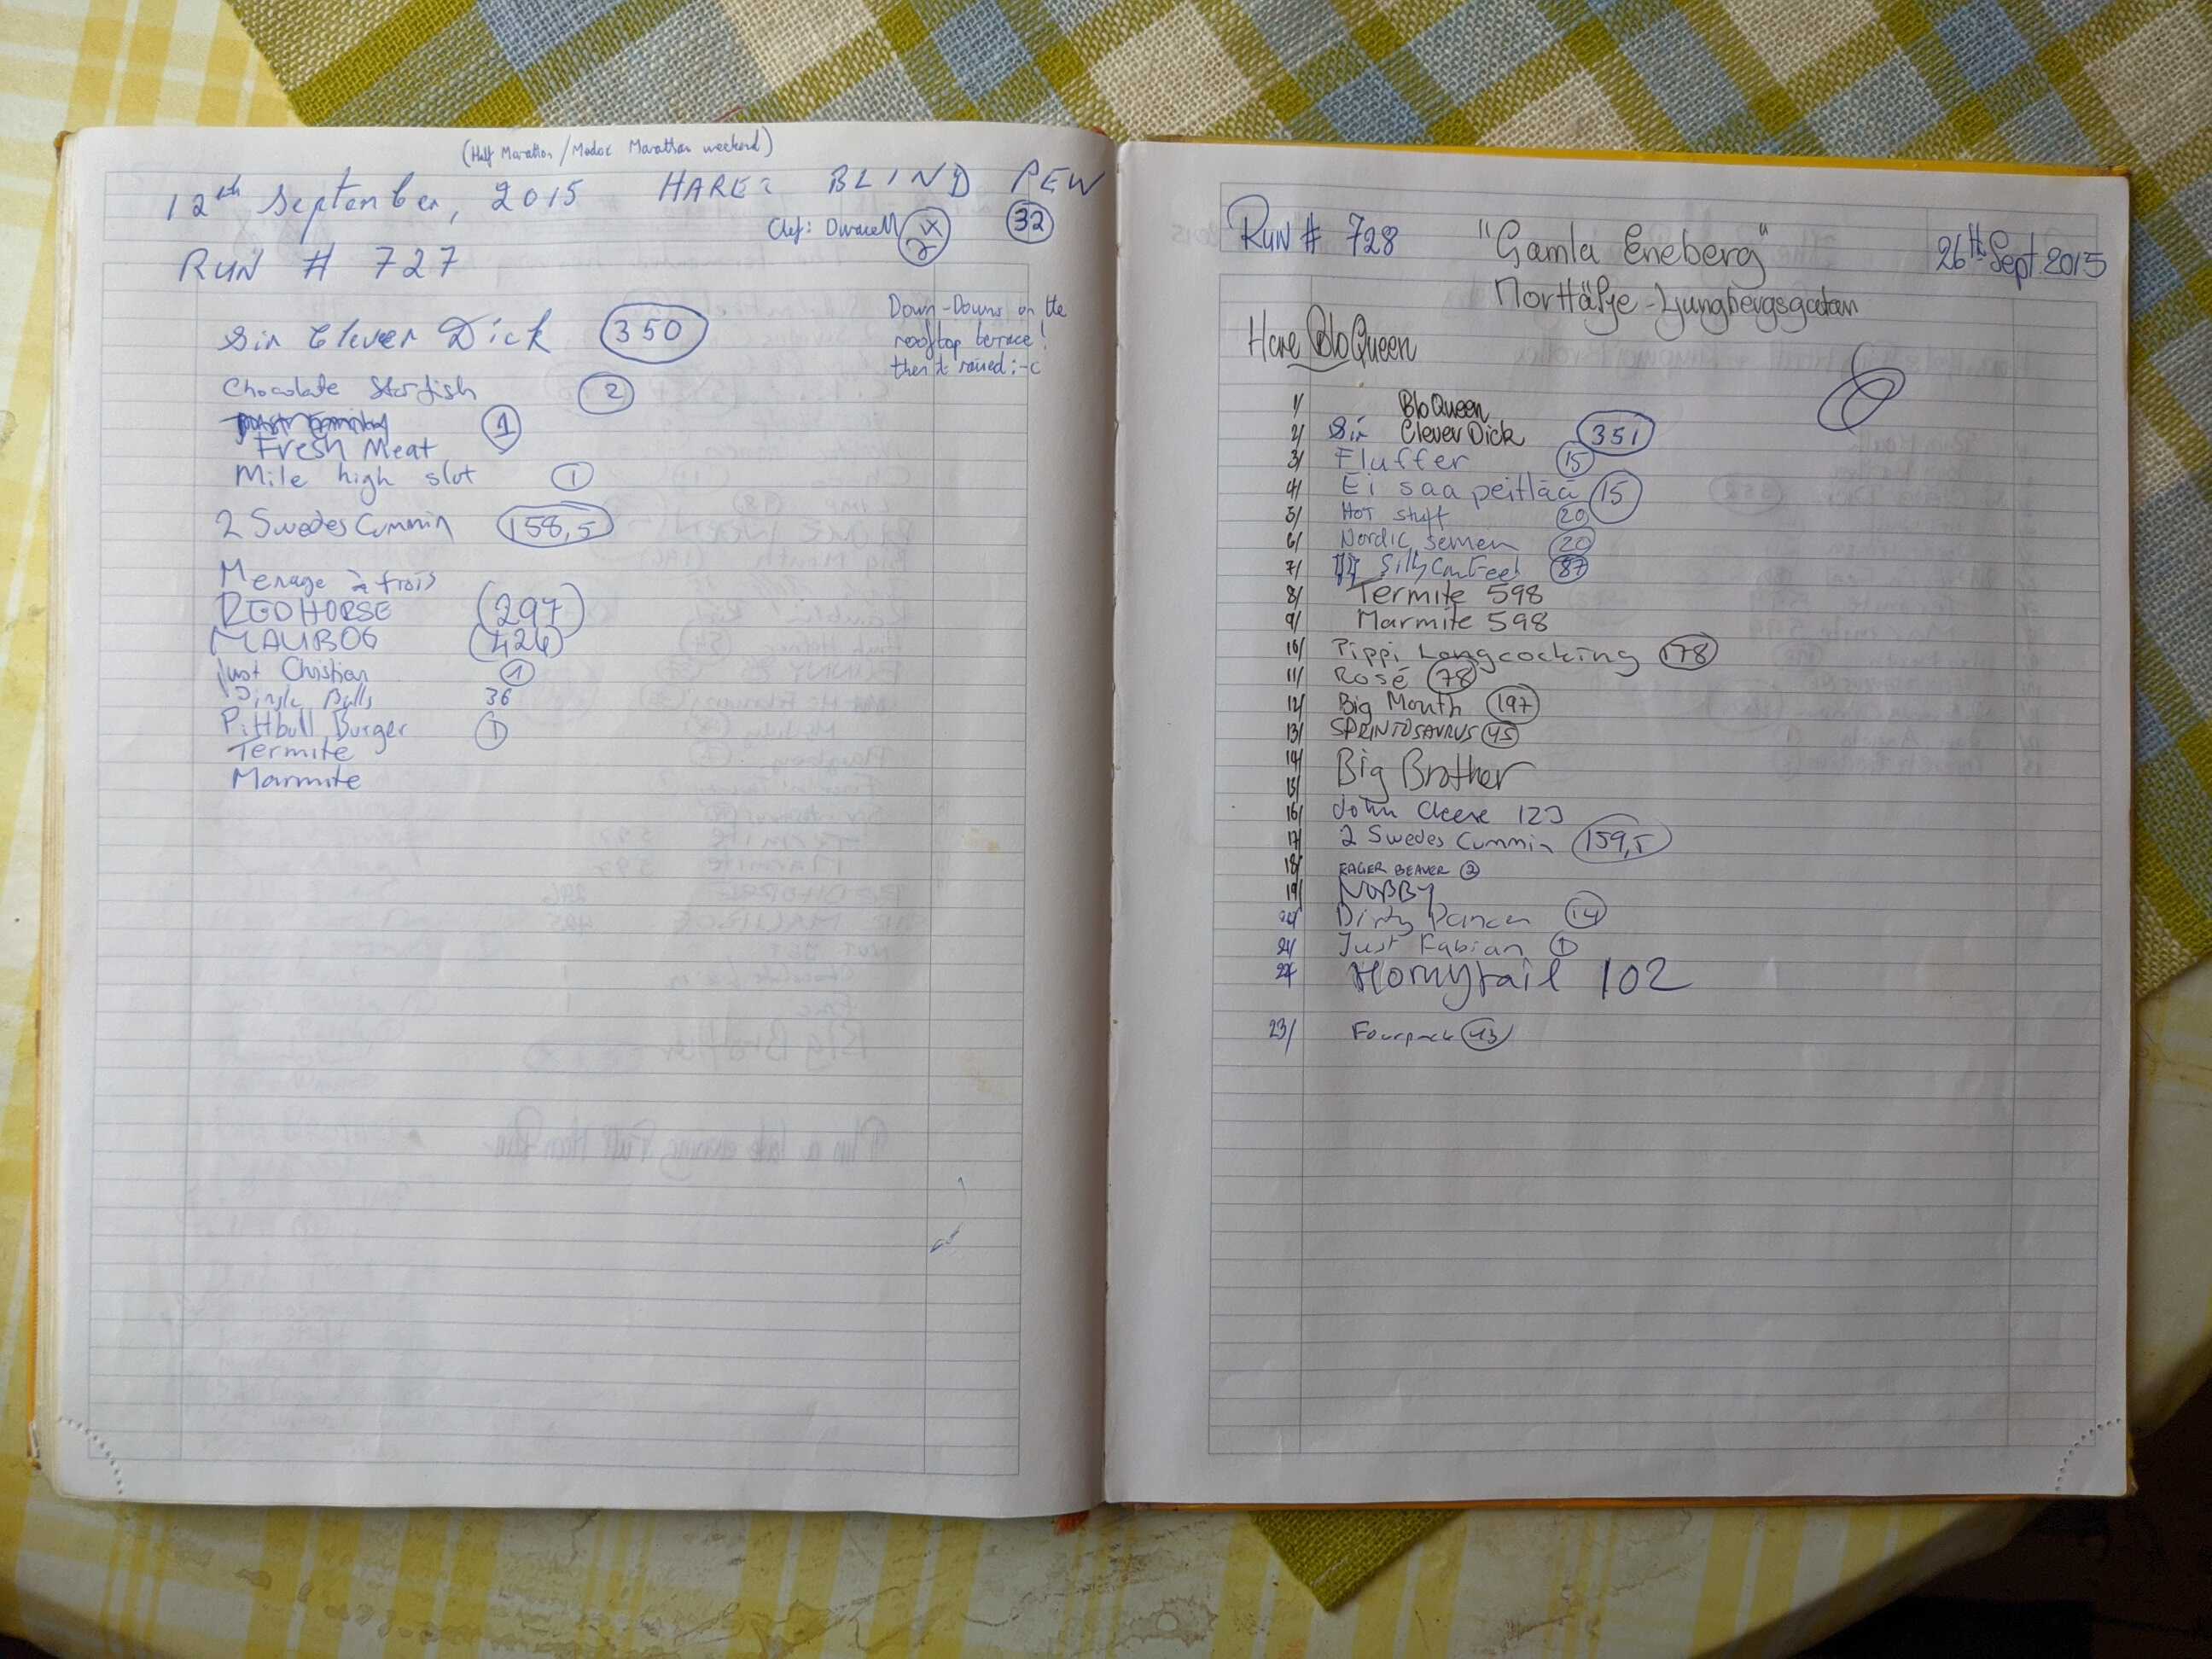 (Half Marathon / Medoc Marathon weekend)
12th September, 2015 HARE: BLIND PEW
Chef: Duracell 32
RUN # 727
Down-Downs on the
rooftop terrace!
then it rained :-c
Sir Clever Dick 350
Chocolate Starfish 2
1
Fresh Meat
Mile high slut 1
2 Swedes Cummin 158,5
Menage à trois
REDHORSE (297)
MAUBOG (426)
Just Christian 1
Jingle Balls 36
Pittbull Burger 1
Termite
Marmite
RUN # 728 "Gamla Eneberg" 26th Sept 2015
Norttälje - Ljungbergsgatan
Hare BloQueen
1/ BloQueen
2/ Sir Clever Dick 351
3/ Fluffer 15
4/ Ei saa peittää 15
5/ Hot stuff 20
6/ Nordic semen 20
7/ Silly Con Feel 87
8/ Termite 598
9/ Marmite 598
10/ Pippi Longcocking 178
11/ Rosé 78
12/ Big Mouth 197
13/ SPRINTOSAURUS 45
14/ Big Brother
15/
16/ John Cleese 123
17/ 2 Swedes Cummin 159,5
18/ EAGER BEAVER 2
19/ NOBBY
20/ Dirty Dancer 14
21/ Just Fabian 1
22/ Hornytail 102
23/ Fourpack 43